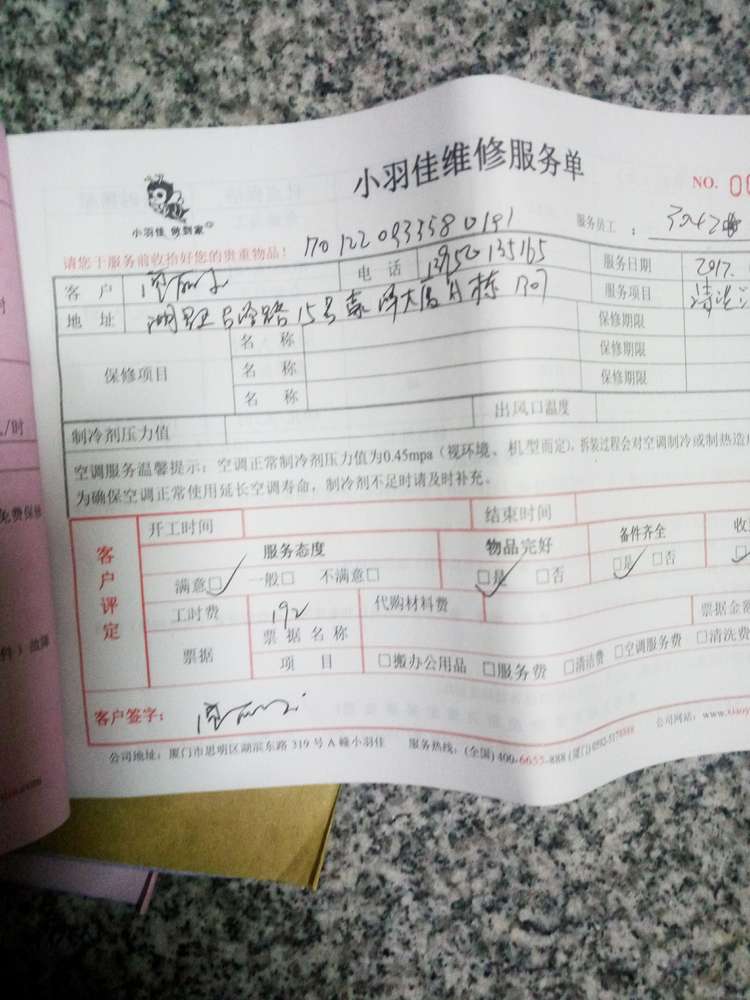 小羽佳维修服务单
NO. 00
小羽佳 做到家
服务员工：
请您于服务前收拾好您的贵重物品！ 701220933580191
客 户 电 话 13950135165 服务日期 2017.
地 址 15号 大厦A栋 707 服务项目 清洗
保修项目 名 称 保修期限
名 称 保修期限
名 称 保修期限
制冷剂压力值 出风口温度
空调服务温馨提示：空调正常制冷剂压力值为0.45mpa（视环境、机型而定），拆装过程会对空调制冷或制热造成
为确保空调正常使用延长空调寿命，制冷剂不足时请及时补充。
客户评定 开工时间 结束时间
服务态度 物品完好 备件齐全 收
满意□ 一般□ 不满意□ □是 □否 □是 □否
工时费 192 代购材料费 票据金额
票据 票据名称
项 目 □搬办公用品 □服务费 □清洁费 □空调服务费 □清洗费
客户签字：
公司地址：厦门市思明区湖滨东路 319 号 A 幢小羽佳 服务热线：(全国) 400-6655-888 (厦门) 0592-5178888 公司网站：www.xiaoy
/时
免费保修
件）故障